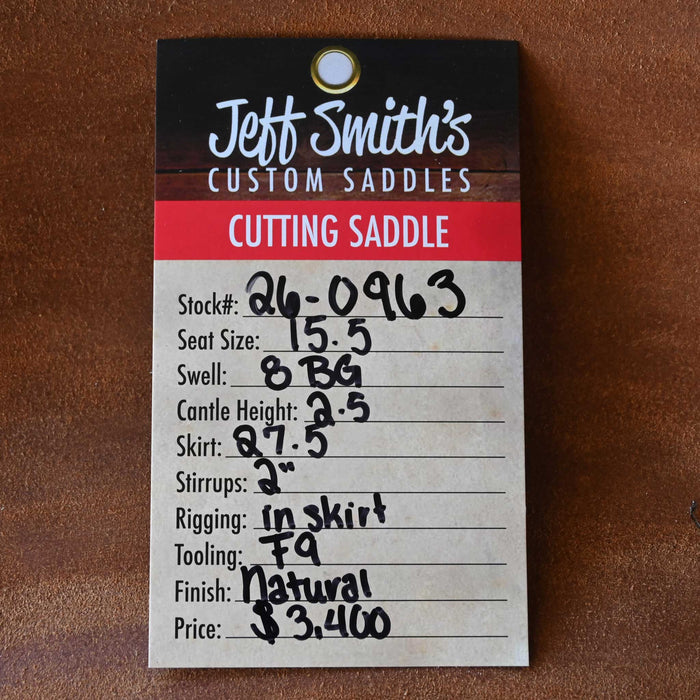 Jeff Smith's
CUSTOM SADDLES
CUTTING SADDLE
Stock#: 26-0963
Seat Size: 15.5
Swell: 8 BG
Cantle Height: 2.5
Skirt: 27.5
Stirrups: 2"
Rigging: in skirt
Tooling: F9
Finish: Natural
Price: $3,400